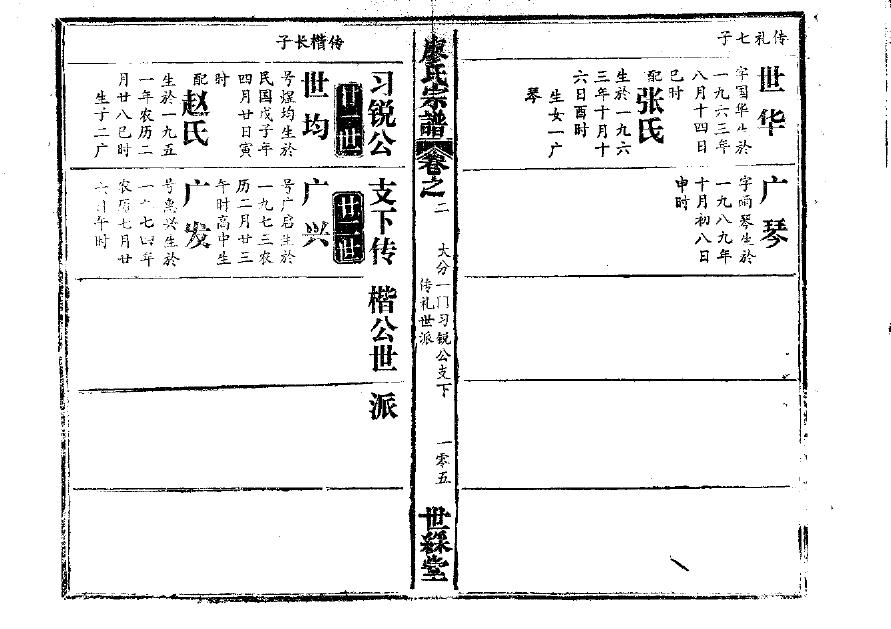 传礼七子
世华
字国华生於
一九六三年
八月十四日
巳时
配张氏
生於一九六
三年十月十
六日酉时
生女一广
琴
广琴
字雨琴生於
一九八九年
十月初八日
申时
廖氏宗譜
卷之二
大分一门习锐公支下
传礼世派
一零五
世綵堂
传楷长子
习锐公支下传楷公世派
廿一世
世均
号煜均生於
民国戊子年
四月廿日寅
时
配赵氏
生於一九五
一年农历二
月廿八巳时
生子二广
廿二世
广兴
号广启生於
一九七三农
历二月廿三
午时高中生
广发
号惠兴生於
一九七四年
农历七月廿
六日午时